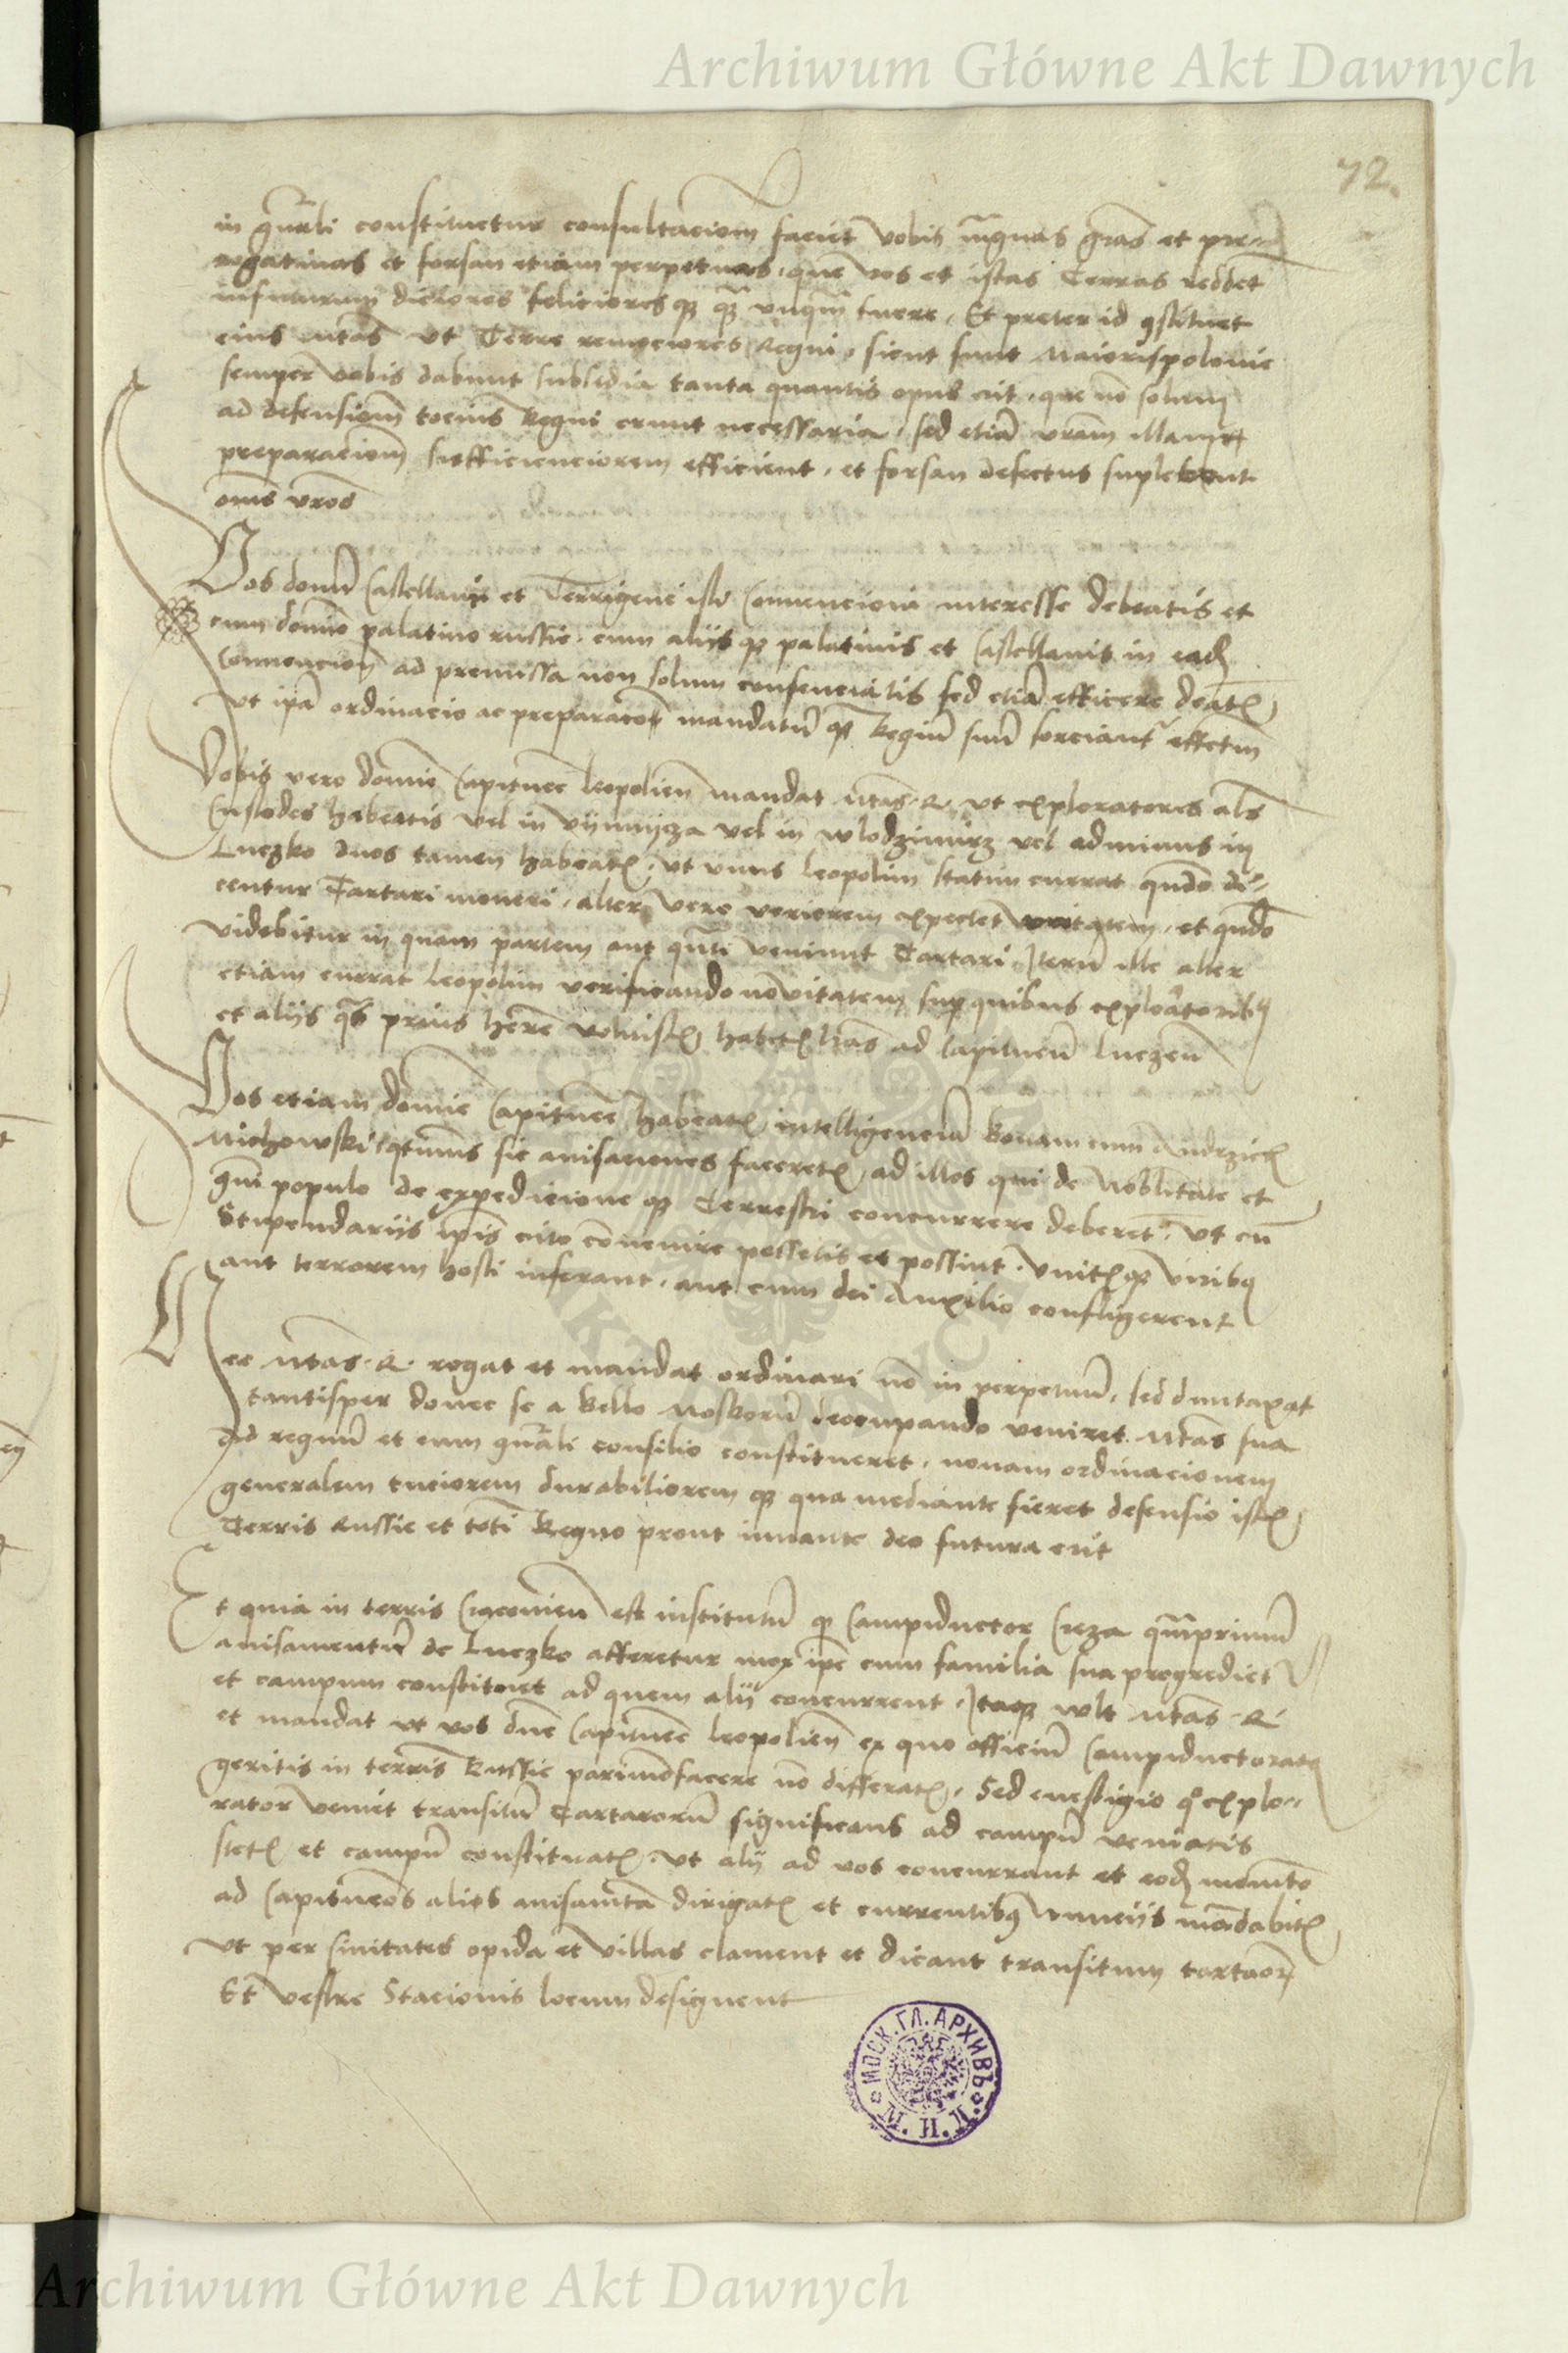 Archiwum Główne Akt Dawnych
72
in gnrali constituetur consultacionem faciet vobis magnas gras et pre-
rogativas et forsan etiam perpetuas, que vos et istas Terras reddet
infuturum diciores felicioresq3 q3 unqm fuere, Et preter id constituet
eius mtas ut Terre remociores Regni, sicut sunt Maiorispolonie
semper vobis dabunt subsidia tanta quantis opus erit, que no solum
ad defensionem tocius Regni erunt necessaria, sed etiam vram illam
preparacionem sufficienciorem efficient, et forsan defectus suplebunt
omnes vros
Vos domini Castellani et Terrigene isti Convencioni interesse debeatis et
cum domino palatino russie, cum aliisq3 palatinis et Castellanis in eadem
Convencione ad premissa non solum consenciatis sed etiam efficere debeatis
Ut ipa ordinacio ac preparacio mandatumq3 Regium suum sorciantur effectum
Vobis vero domine Capitanee leopolien mandat mtas R. ut exploratores als
Custodes habeatis vel in vynnycza vel in wlodzimirz vel adminus in
Luczko duos tamen habeatis, ut unus leopolim statim currat quando di-
centur Tartari moveri, alter vero veriorem expectet novitatem, et quando
videbitur in quam partem aut quanti veniunt Tartari Iterum ille alter
etiam currat leopolim verificando novitatem super quibus exploratoribus
et aliis quas prius habere voluistis habetis lras ad Capitaneum luczen
Vos etiam domine Capitanee habeatis intelligenciam bonam cum Andrzich
Michowski quatinus sic avisaciones faceretis ad illos qui de Nobilitate et
communi populo de expedicioneq3 Terrestri concurrere deberent, Ut cum
Stipendariis ipis cito convenire possetis et possint, Unitisq3 viribus
aut terrorem hosti inferant, aut cum dei Auxilio confligerent
Hec Mtas R. rogat et mandat ordinari no in perpetuum, sed duntaxat
tantisper donec se a bello Moskorum deocupando veniret Mtas sua
ad regnum et cum gnrali consilio constitueret, novam ordinacionem
generalem tuciorem durabilioremq3 qua mediante fieret defensio istis
Terris Russie et toti Regno prout iuvante deo futura erit
Et quia in terris Cracovien est institutum q Campiductor Creza quamprimum
avisamentum de Luczko afferetur mox ipe cum familia sua progrediet
et campum constituet ad quem alii concurrent, Itaq3 wlt Mtas R.
et mandat ut vos dne Capitanee leopolien ex quo officium Campiductoratus
geritis in terris Russie parimodo facere no differatis, Sed evestigio q explo-
rator veniet transitum Tartarorum significans ad campum veniatis
stetis et campum constituatis, ut alii ad vos concurrant et eodem momento
ad Capitaneos alios avisamenta dirigatis et currentibus nunciis mandabitis
Ut per civitates opida et villas clament et dicant transitum tartarorum
Et vestre Stacionis locum designent
МОСК. ГЛ. АРХИВЪ М. И. Д.
Archiwum Główne Akt Dawnych